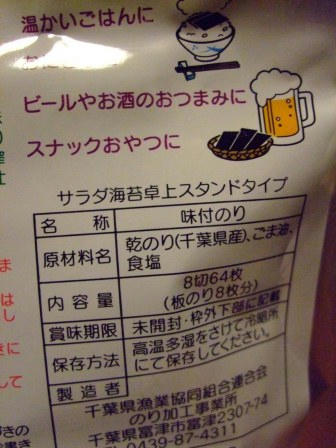 温かいごはんに
ビールやお酒のおつまみに
スナックおやつに
サラダ海苔卓上スタンドタイプ
名 称 味付のり
原材料名 乾のり(千葉県産)、ごま油、
食塩
内 容 量 8切64枚
(板のり8枚分)
賞味期限 未開封・枠外下部に記載
保存方法 高温多湿をさけて冷暗所
にて保存してください。
製 造 者
千葉県漁業協同組合連合会
のり加工事業所
千葉県富津市富津2307-74
0439-87-4311